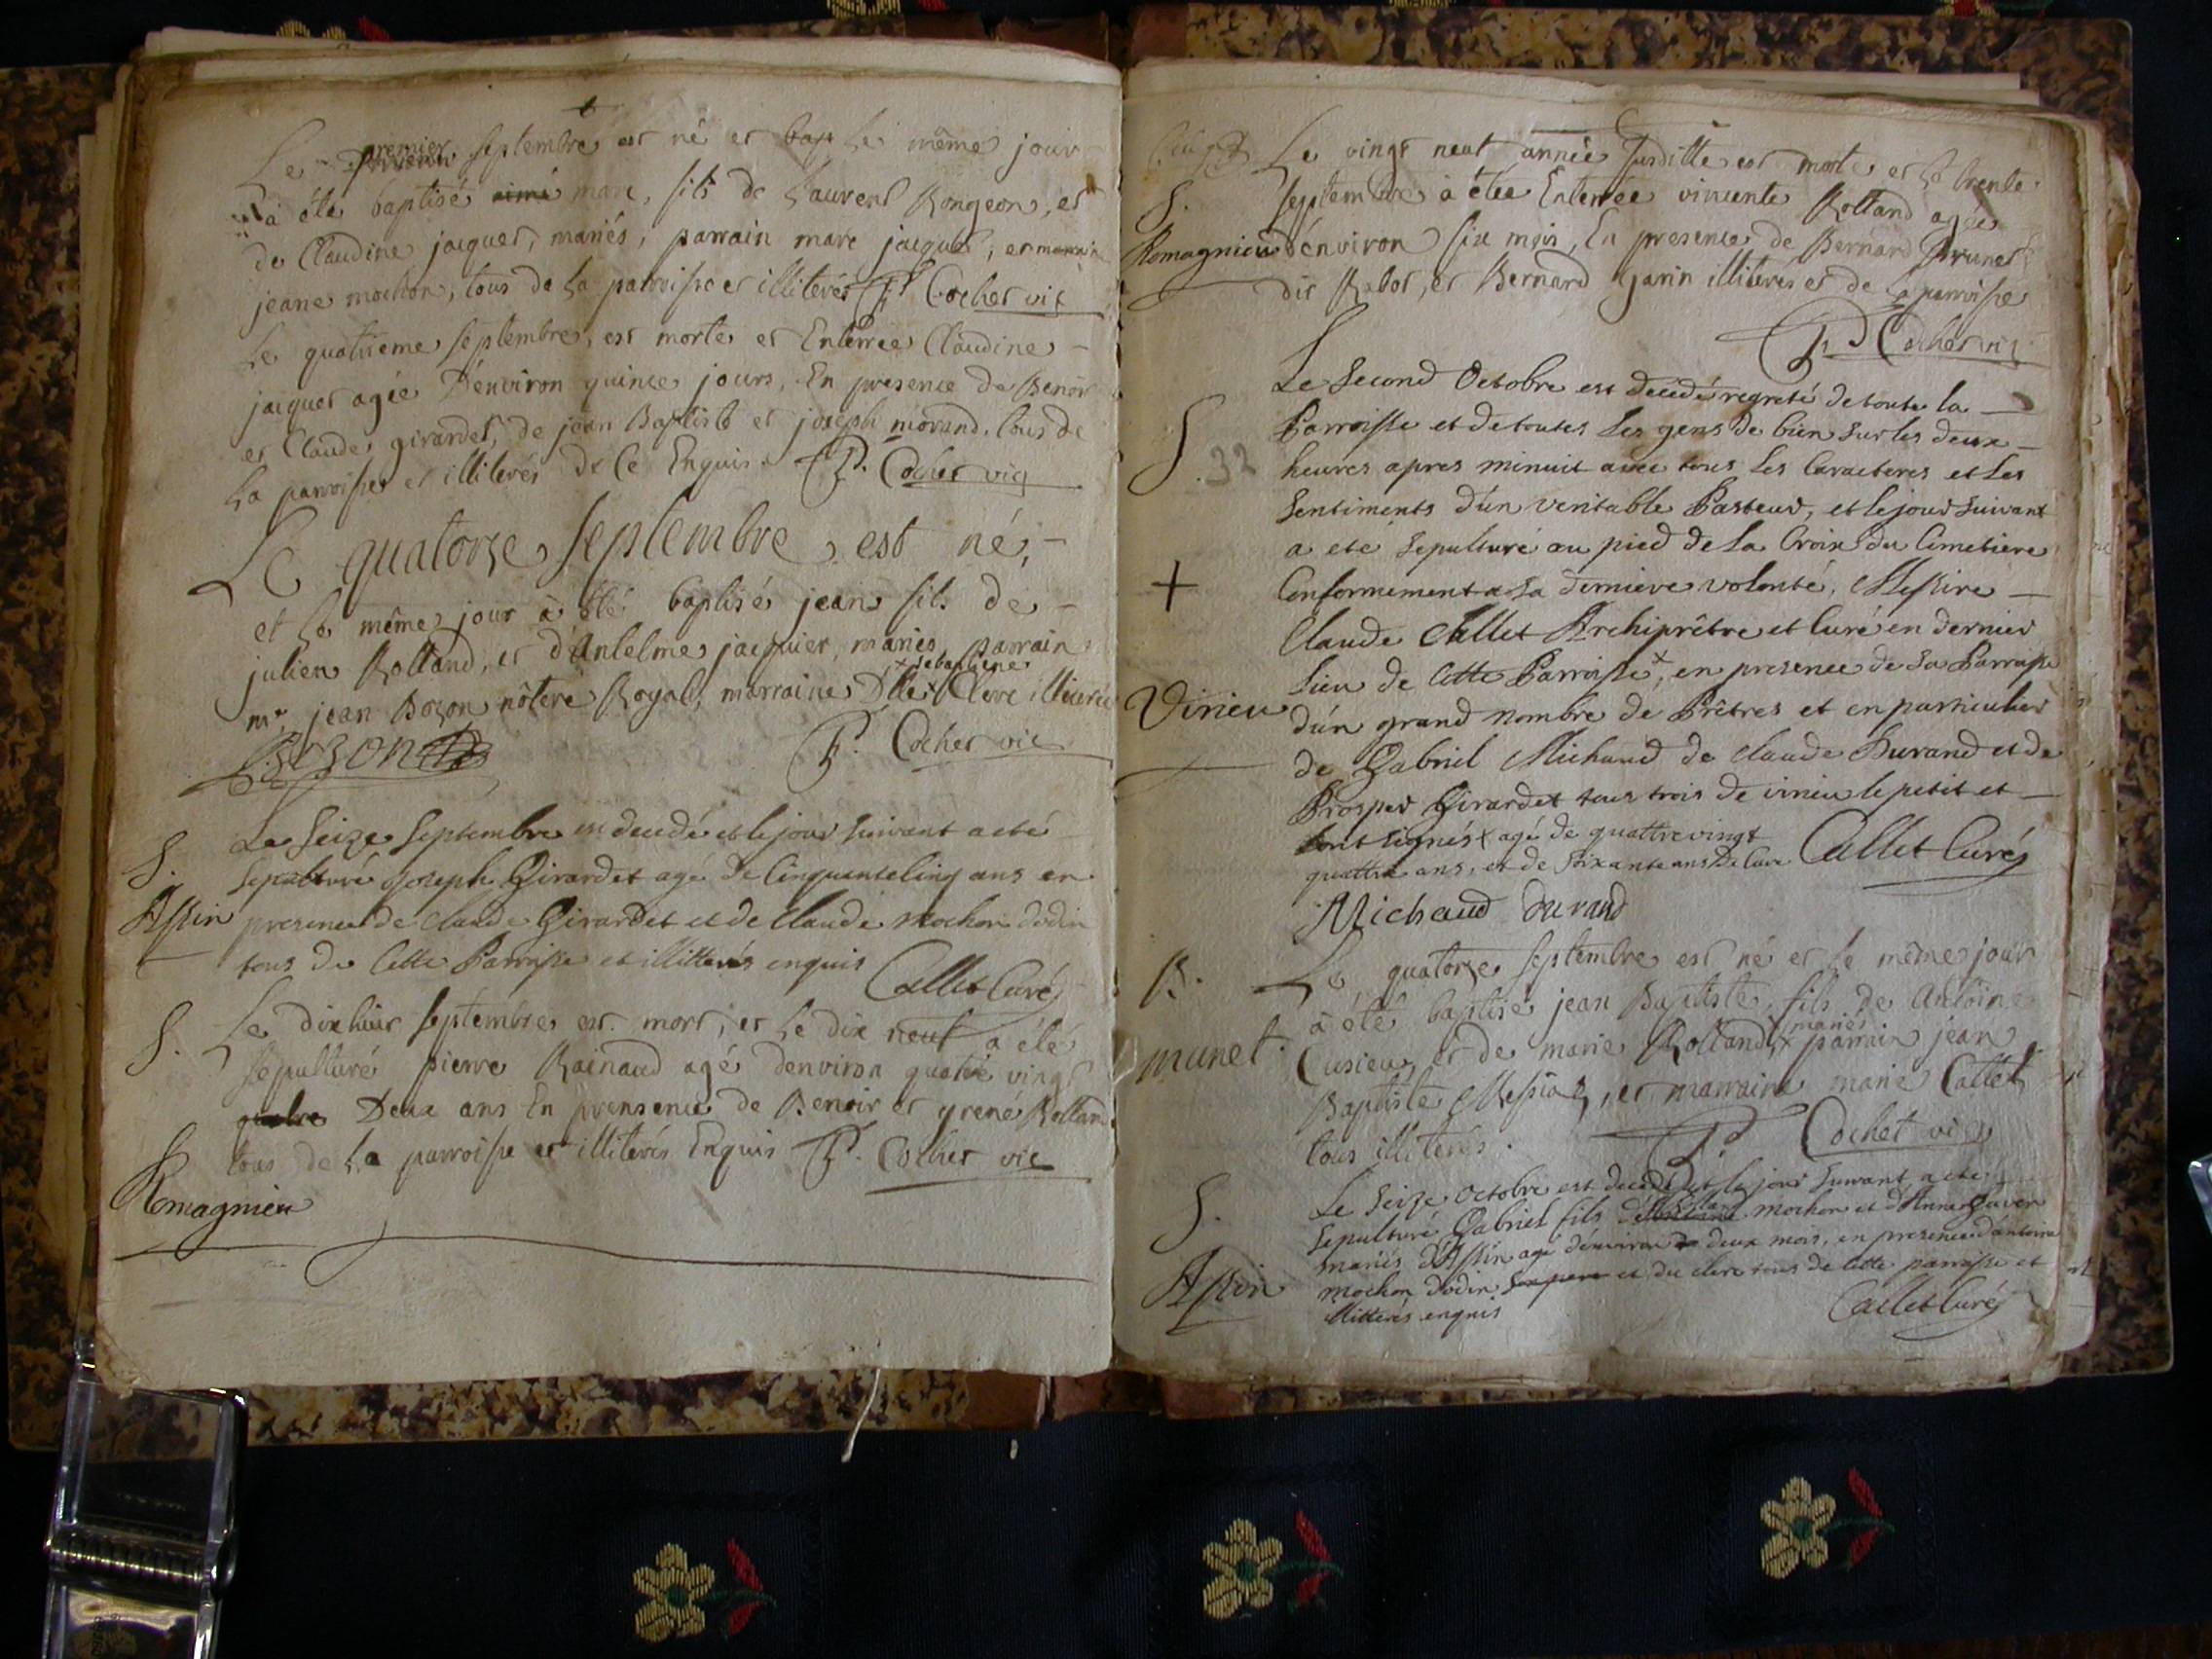 Le premier septembre est né et bap le même jour
à été baptisé aimé marc, fils de Laurent Rongeon, et
de Claudine jacquet, mariés, parrain marc jacquet, et marraine
jeane mochon, tous de la parroisse et illiterés P. Cochet vic
Le quatrieme septembre, est morte et Enterree Claudine
jacquet agée D'environ quinze jours, En presence de Benoit
et Claude girardet, de jean Baptiste et joseph morand, tous de
La parroisse et illiterés de ce Enquis. P. Cochet vic
Le quatorze septembre est né,
et le même jour à été baptisé jean fils de
julien Rolland, et d'Antelme jacquier, mariés, parrain
x sebastiene
mr. jean Bozon nôtere Royal, marraine Dlle x Clerc illiterée
Bozon
P. Cochet vic
S. Le Seize Septembre en decedé et le jour suivant a eté
sepulturé Joseph Girardet agé de Cinquantecinq ans en
Assin presence de Claude Girardet et de Claude Mochon dodin
tous de Cette Parroisse et illitterés enquis
Callet Curé
S. Le dixhuit septembre est mort, et le dix neuf a été
sepulturé pierre Rainaud agé d'environ quatre vingt
quatre Deux ans En prensence de Benoit et grené Rolland
tous de La parroisse et illiterés Enquis P. Cochet vic
Romagnieu
Le vingt neuf année susditte est morte et le trente
S. septembre à étée Enterrée vincente Rolland agée
Romagnieu d'environ six mois, En presence de Bernard Brunet
dit Rabot, et Bernard garin illiterés et de la parroisse
P. Cochet vic
Le Second Octobre est decedé regreté de toute la
S. 32 Parroisse et de toutes les gens de bien sur les deux
heures apres minuit avec tous les Caracteres et les
sentiments d'un veritable Pasteur, et le jour suivant
a eté sepulturé au pied de la Croix du Cimetiere
+ Conformement a sa derniere volonté, Messire
Claude Callet Archiprêtre et Curé en dernier
Lieu de Cette Parroisse x, en presence de sa Parroisse
Virieu d'un grand nombre de Prêtres et en particulier
de Gabriel Michaud de Claude Durand et de
Prosper Girardet tous trois de virieu le petit et
sont signés x agé de quattrevingt
quattre ans, et de soixante ans de Cure Callet Curé
Michaud Durand
B. Le quatorze septembre est né et le même jour
à été baptisé jean Baptiste, fils de Antoine
mariés
munet. Cusieu, et de marie Rolland, x parrain jean
Baptiste Messiaz, et marraine marie Callet
tous illiterés. P. Cochet vic
S. Le Seize Octobre est decedé et le jour suivant a eté
sepulturé Gabriel fils mochon et d'Anne
mariés d'Assin agé d'environ deux mois, en presence d'antoine
Assin mochon dodin son pere et du clerc tous de Cette parroisse et
illitterés enquis
Callet Curé